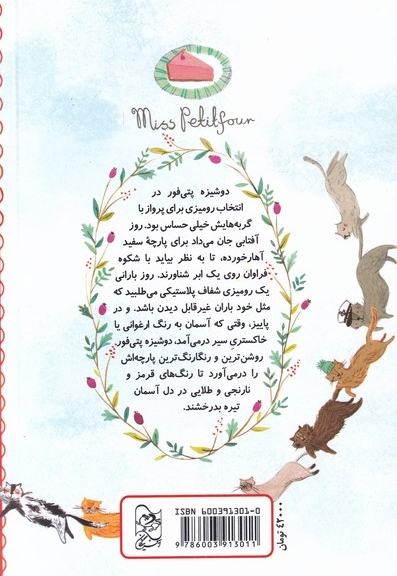 Miss Petitfour
دوشیزه پتی‌فور در
انتخاب رومیزی برای پرواز با
گربه‌هایش خیلی حساس بود. روز
آفتابی جان می‌داد برای پارچهٔ سفید
آهارخورده، تا به نظر بیاید با شکوه
فراوان روی یک ابر شناورند. روز بارانی
یک رومیزی شفاف پلاستیکی می‌طلبید که
مثل خود باران غیرقابل دیدن باشد. و در
پاییز، وقتی که آسمان به رنگ ارغوانی یا
خاکستری سیر درمی‌آمد، دوشیزه پتی‌فور
روشن‌ترین و رنگارنگ‌ترین پارچه‌اش
را درمی‌آورد تا رنگ‌های قرمز و
نارنجی و طلایی در دل آسمان
تیره بدرخشند.
ISBN 600391301-0
9 786003 913011
۴۲۰۰۰ تومان